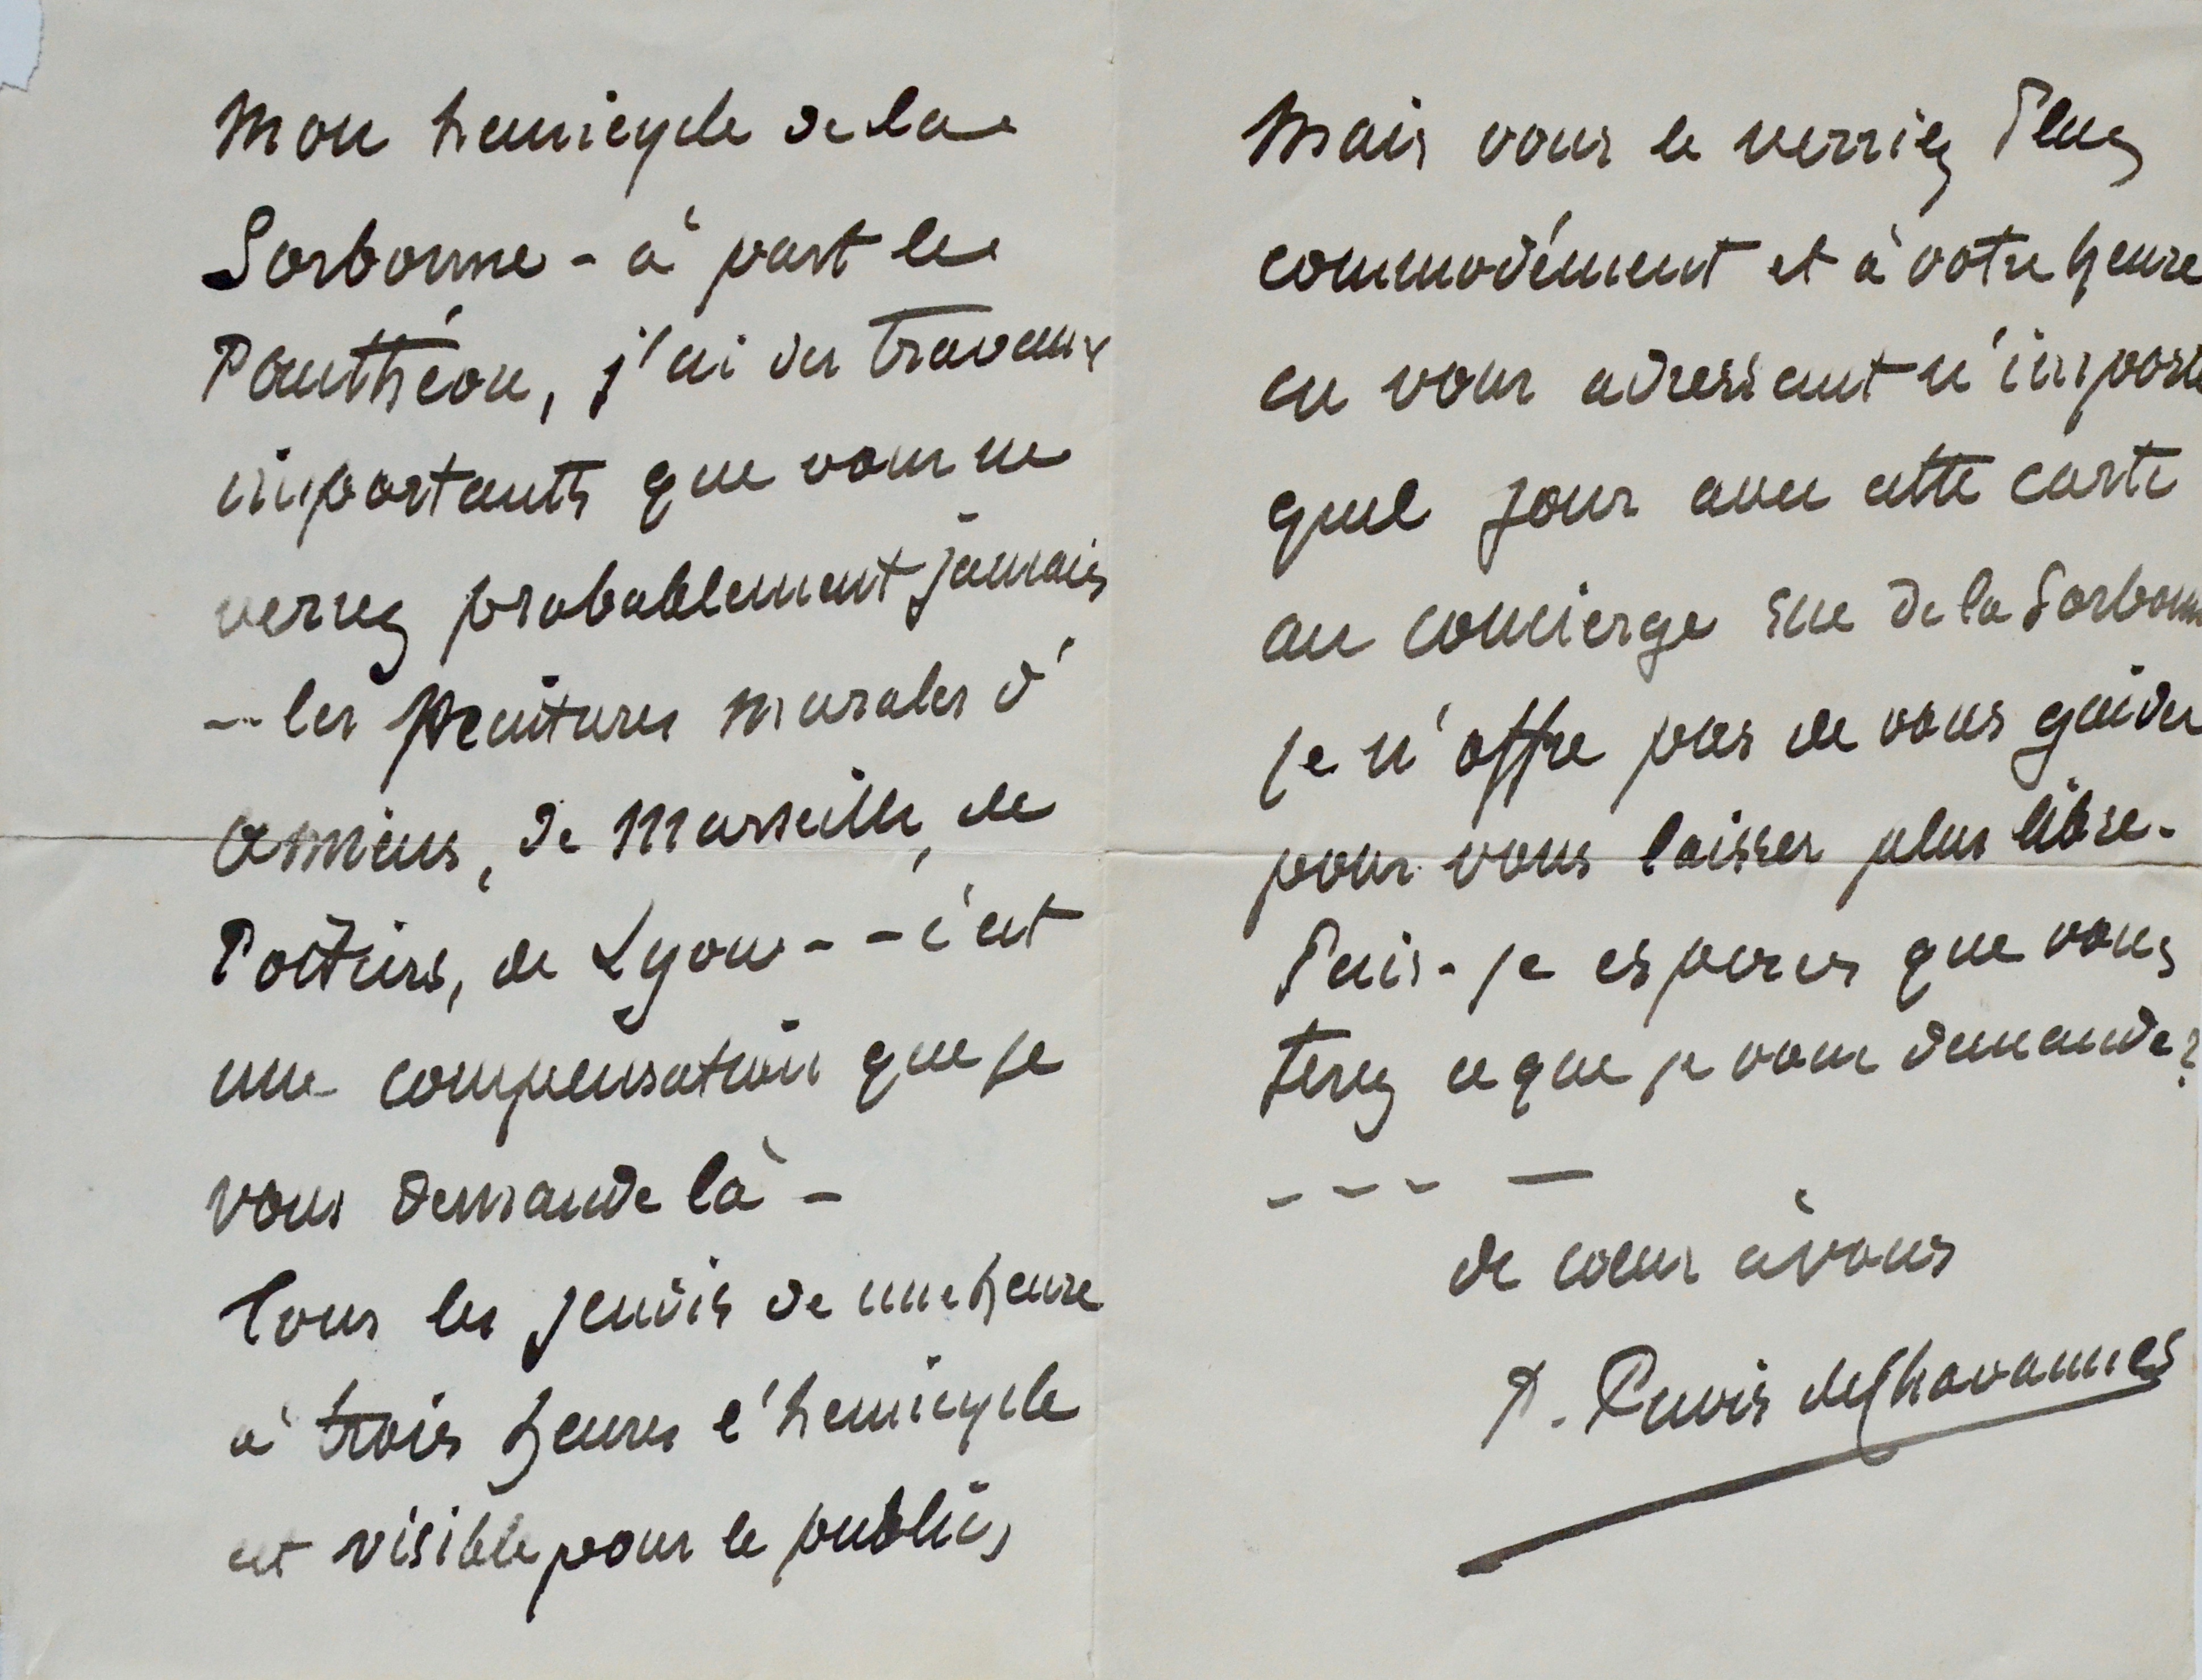 Mon hemicycle de la
Sorbonne - à part le
Panthéon, j'ai des travaux
importants que vous ne
verrez probablement jamais
-- les peintures murales d'
Amiens, de Marseille, de
Poitiers, de Lyon - - c'est
une compensation que je
vous demande là -
Tous les jeudis de une heure
à trois heures l'hemicycle
est visible pour le public,
Mais vous le verriez plus
commodément et à votre heure
en vous adressant n'importe
quel jour avec cette carte
au concierge rue de la Sorbonne
je n'offre pas de vous guider
pour vous laisser plus libre -
Puis-je esperer que vous
ferez ce que je vous demande?
- - - —
de coeur à vous
P. Puvis de Chavannes